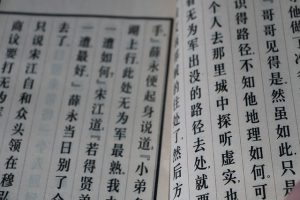 『哥哥见得是。然虽如此,只是
识得路径,不知他地理如何。可
个人去那里城中探听虚实,也
无为军出没的路径去处,就要
贼的住处了,然后方
手。』薛永便起身说道:『小弟
湖上行,此处无为军最熟。我
一遭如何?』宋江道:『若得贤
一遭最好。』薛永当日别了
去了。
只说宋江自和众头领在穆弘
商议要打无为